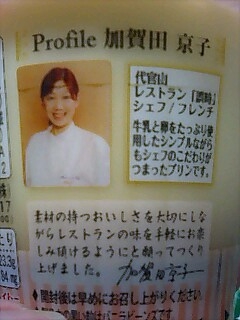 Profile 加賀田 京子
代官山
レストラン「
シェフ/フレンチ
牛乳と卵をたっぷり使
用したシンプルなが
らもシェフのこだわりが
つまったプリンです。
素材の持つおいしさを大切にしな
がらレストランの味を手軽にお楽
しみ頂けるようにと願ってつくり
上げました。加賀田京子
◆開封後は早めにお召し上がりください
バニラビーンズで